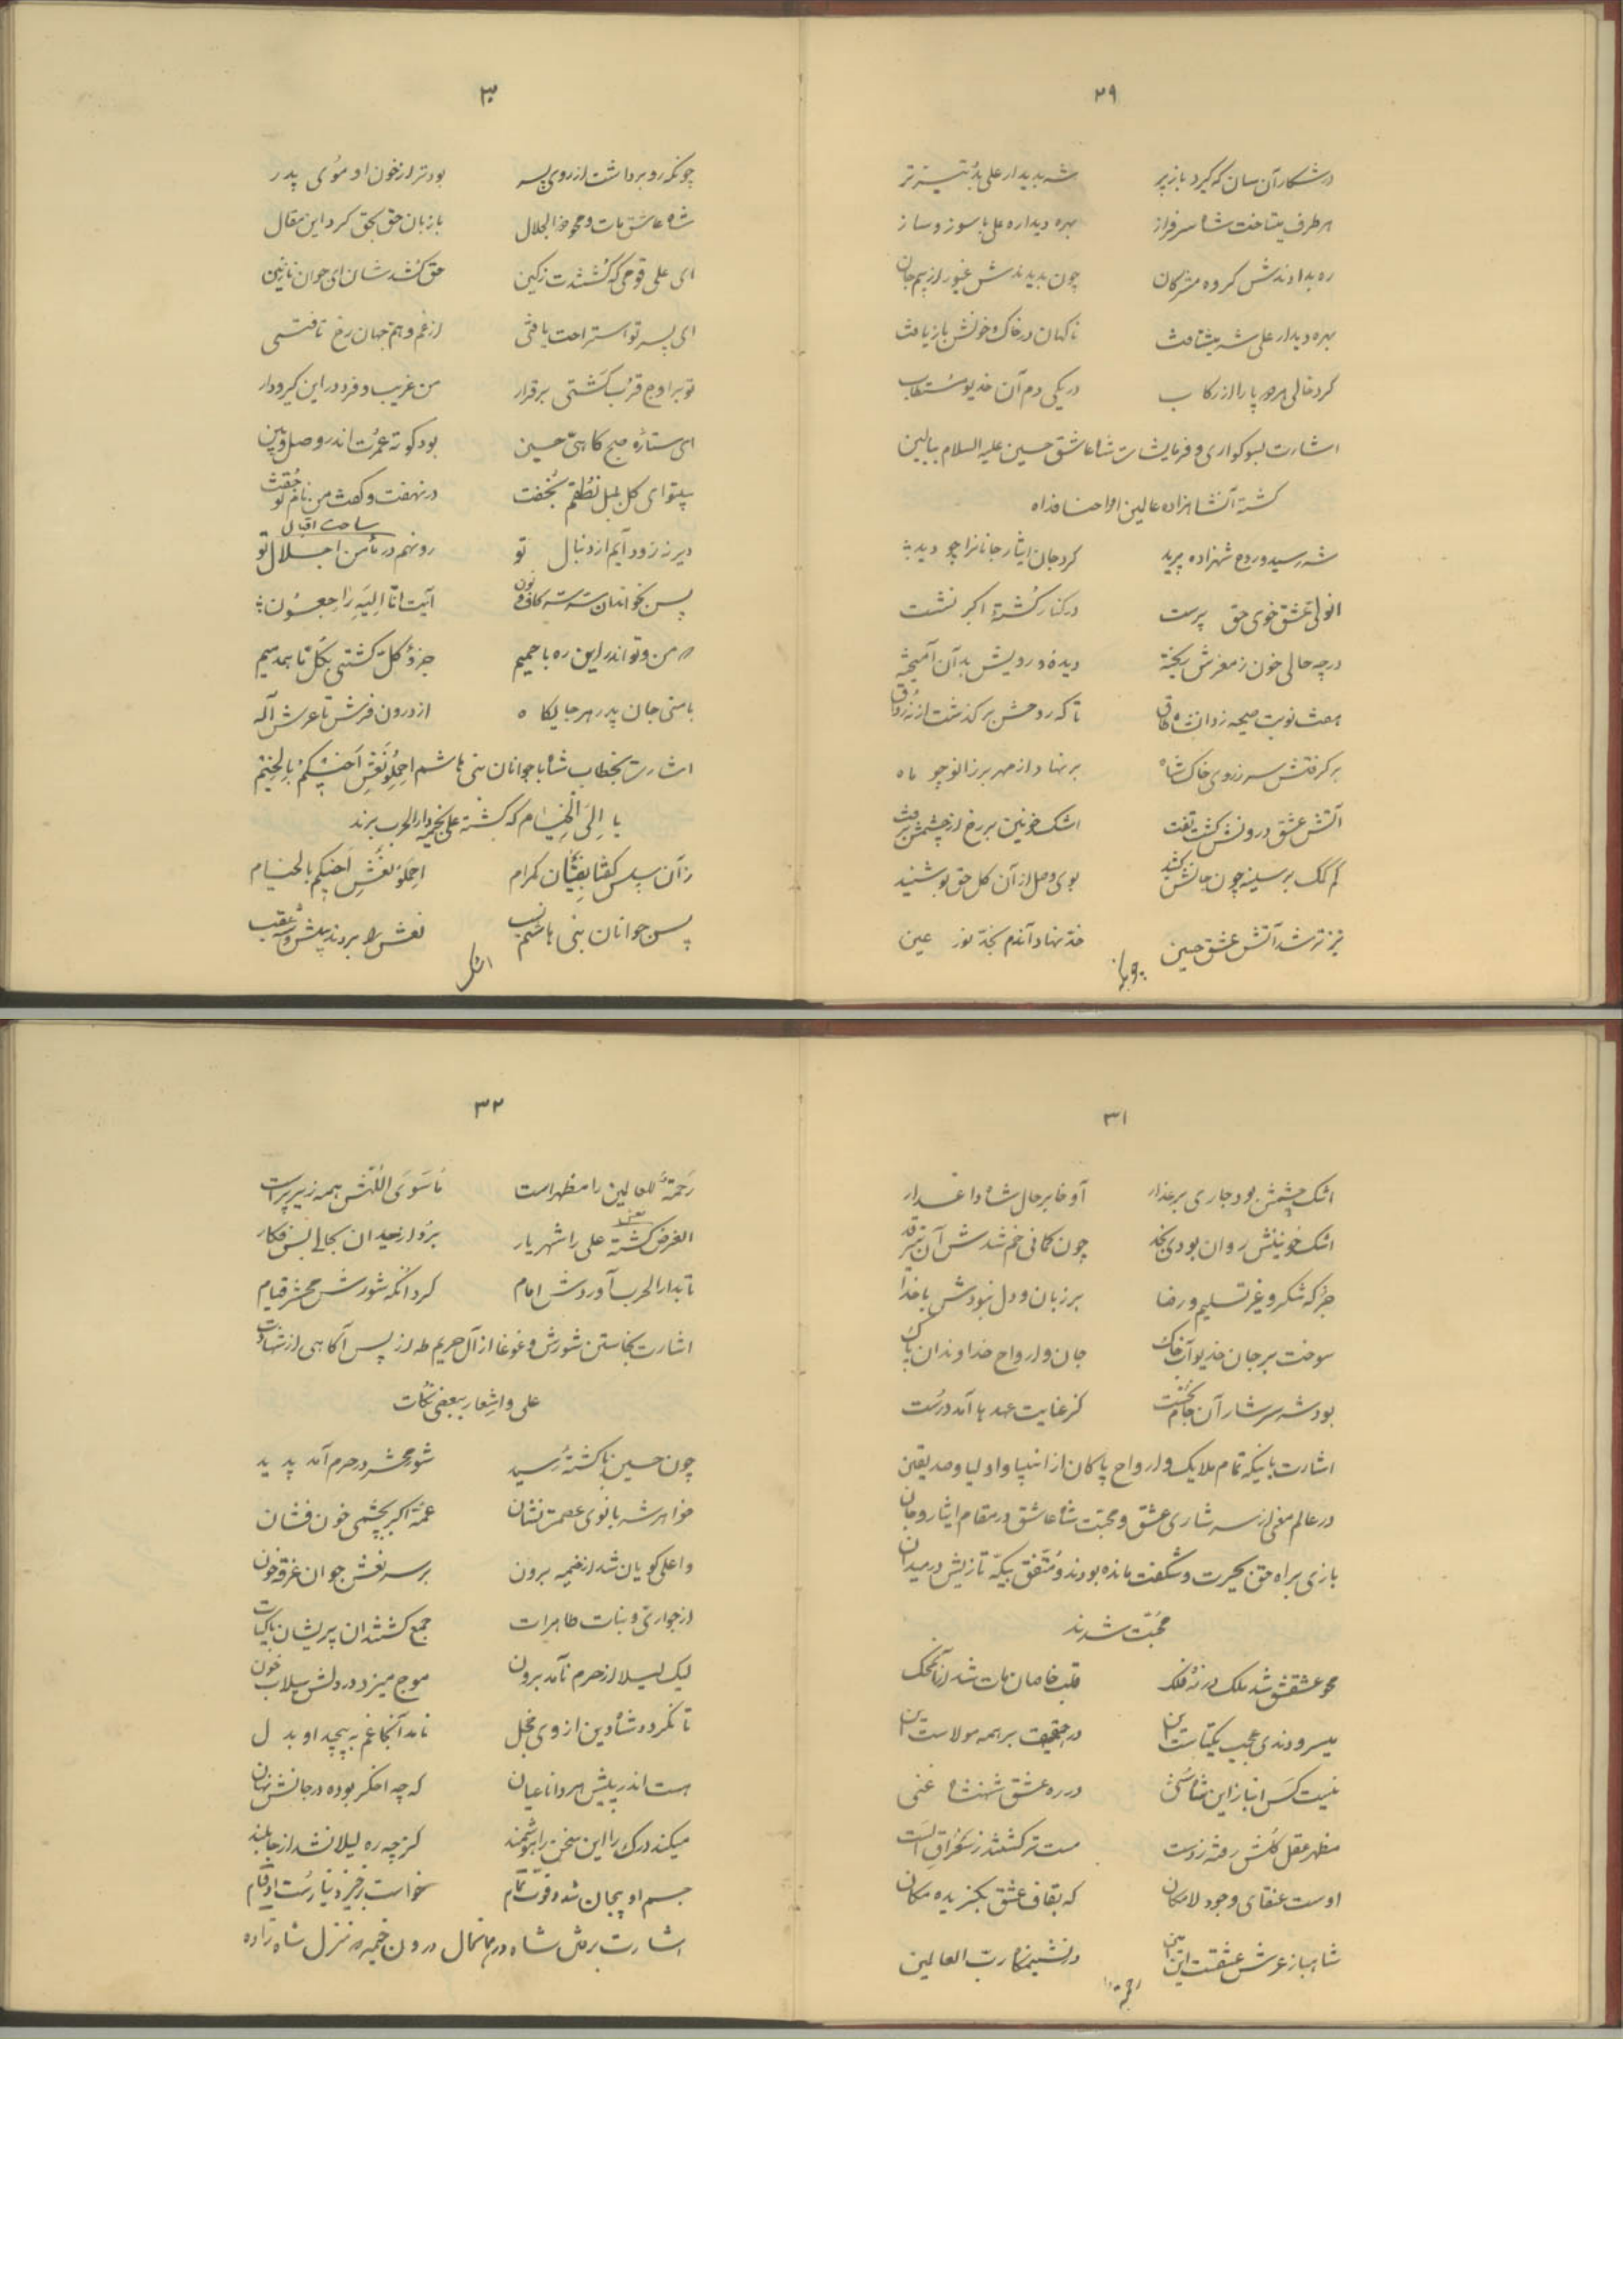 ۲۹
در شکار آن سان که گیرد باز پر شه بدیدار علی بد تیزتر
هر طرف میتاخت شاه سرفراز بهره دیداره علی با سوز و ساز
ره بدادندش گروه مشرکان چون بدیدندش غیور از بیم جان
بهره دیدار علی شه میشتافت ناگهان در خاک و خونش باز یافت
کرد خالی پا را از رکاب در یکی دم آن خدیو مستطاب
اشارت بسوکواری و فرمایشات شاه عاشق حسین علیه السلام ببالین
کشته آنشاهزاده عالمین ارواحنا فداه
شه رسید و روح شهزاده پرید کرد جان ایثار جانانرا چو دید
در کنار کشتهٔ اکبر نشست
در چه حالی خون ز مغزش ریخته دیده و رویش بدآن آمیخته
هفت نوبت صیحه زد آنشاه تا که روحش بر گذشت از نه رواق
بر گرفتش سر ز روی خاک شاه بر نهاد از مهر بر زانو چو ماه
آتش عشق درونش گشت تفت اشک خونین بر رخ از چشمش برفت
کم کمک بر سینه چون جانش کشید بوی وصل از آن گل حق بو شنید
تیزتر شد آتش عشق حسین خد نهاد آندم بخد نور عین
۳۰
چونکه رو برداشت از روی پسر بود تر از خون او موی پدر
شاه عاشق مات و محو ذوالجلال با زبان حق بحق کرد این مقال
ای علی قومی که کشتندت ز کین حق کشدشان ای جوان نازنین
ای پسر تو استراحت یافتی از غم و هم جهان رخ تافتی
تو بر اوج قرب گشتی برقرار من غریب و فرد در این گیرودار
ای ستارهٔ صبح کاهی حسین بود کوته عمرت اندر وصل و بین
بیتو ای گل بلبل نطقم نخفت در نهفت و گفت من نام تو جفت
ساحت اقبال
دیر نه زود آیم از دنبال تو رو نهم در مأمن اجلال تو
پس بخواند آن شه کاف و نون آیت انا الیه راجعون
من و تو اندر این ره با همیم جزو کل گشتی بکل تا همدمیم
با منی جان پدر هر جایگاه از درون فرش تا عرش اله
اشارت بخطاب شاه با جوانان بنی هاشم احملو نعش اخیکم بالخیم
یا الی الخیام که کشته علی بخیمه دارالحرب برند
زآن سپس گفتا بفتیان کرام احملو نعش اخیکم بالخیام
پس جوانان بنی هاشم نسب نعش را بردند پیش و شه عقب
اشک
۳۱
اشک چشمش بود جاری بر عذار آوخا بر حال شاه داغدار
اشک خونینش روان بودی بخد چون کمانی خم شدش آن تیر قد
جز که شکر و غیر تسلیم و رضا بر زبان و دل نبودش با خدا
سوخت بر جان خدیو آب و خاک جان و ارواح خداوندان پاک
بود شه سرشار آن جام نخست کز عنایت عهدها آمد درست
اشارت باینکه تمام ملایک و ارواح پاکان از انبیا و اولیا و صدیقین
در عالم معنی از سرشاری عشق و محبت شاه عاشق در مقام ایثار و جان
بازی براه حق بحیرت و شگفت مانده بودند و متفق بیکه تازیش در میدان
محبت شدند
محو عشقش شد ملک در نه فلک قلب خاصان مات شد از آن محک
میسرودندی عجب یکتاست این در حقیقت بر همه مولاست این
نیست کس انباز این شاه سخی در ره عشق شهنشاه غنی
مظهر عقل کلش رفته ز دست مست تر گشتند ز سغراق الست
اوست عنقای وجود لامکان که بقاف عشق بگزیده مکان
شاهباز عرش عشقست این در نشیمنگاه رب العالمین
رحمة
۳۲
رحمة للعالمین را مظهر است ماسوی اللهش همه زیر پر است
الغرض کشته علی را شهریار برد از میدان بحالی بس فکار
تا بدار الحرب آوردش امام کرد آنگه شورش محشر قیام
اشارت بخاستن شورش و غوغا از آل حریم طه از پس آگاهی از شهادت
علی و اشعار ببعضی نکات
چون حسین با کشته رسید شور محشر در حرم آمد پدید
خواهر شه بانوی عصمت نشان عمهٔ اکبر بچشمی خون فشان
وا علی گویان شد از خیمه برون بر سر نعش جوان غرقه خون
از جواری و بنات طاهرات جمع گشتند آن پریشان باکیات
لیک لیلا از حرم نآمد برون موج میزد در دلش سیلاب خون
تا نگردد شاه دین از وی خجل نامد آنجا غم به پیچید او بدل
هست اندر پیش هر دانا عیان که چه اخگر بوده در جانش نهان
میکند درک این سخن را هوشمند کز چه ره لیلا نشد از جا بلند
جسم او بیجان شد و قوت تمام خواست برخیزد نیارست او قیام
اشارت برفتن شاه در ماتمال درون خیمه منزل شاهزاده